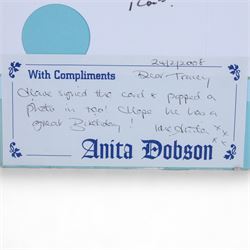 24/2/2008
With Compliments
Dear Tracey
I have signed the card & popped a
photo in too! I hope he has a
great Birthday! love Anita x
x x
x
Anita Dobson